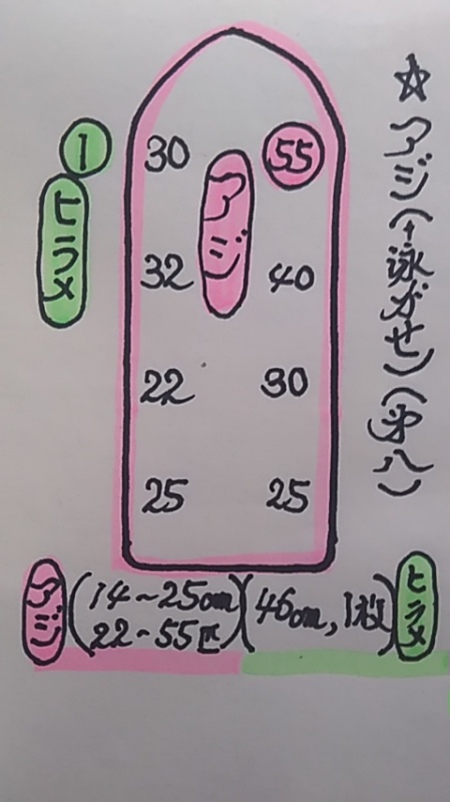 ☆アジ(+泳がせ)(第八)
1
ヒラメ
アジ
30 55
32 40
22 30
25 25
アジ(14~25cm 22~55匹)(46cm, 1枚)ヒラメ